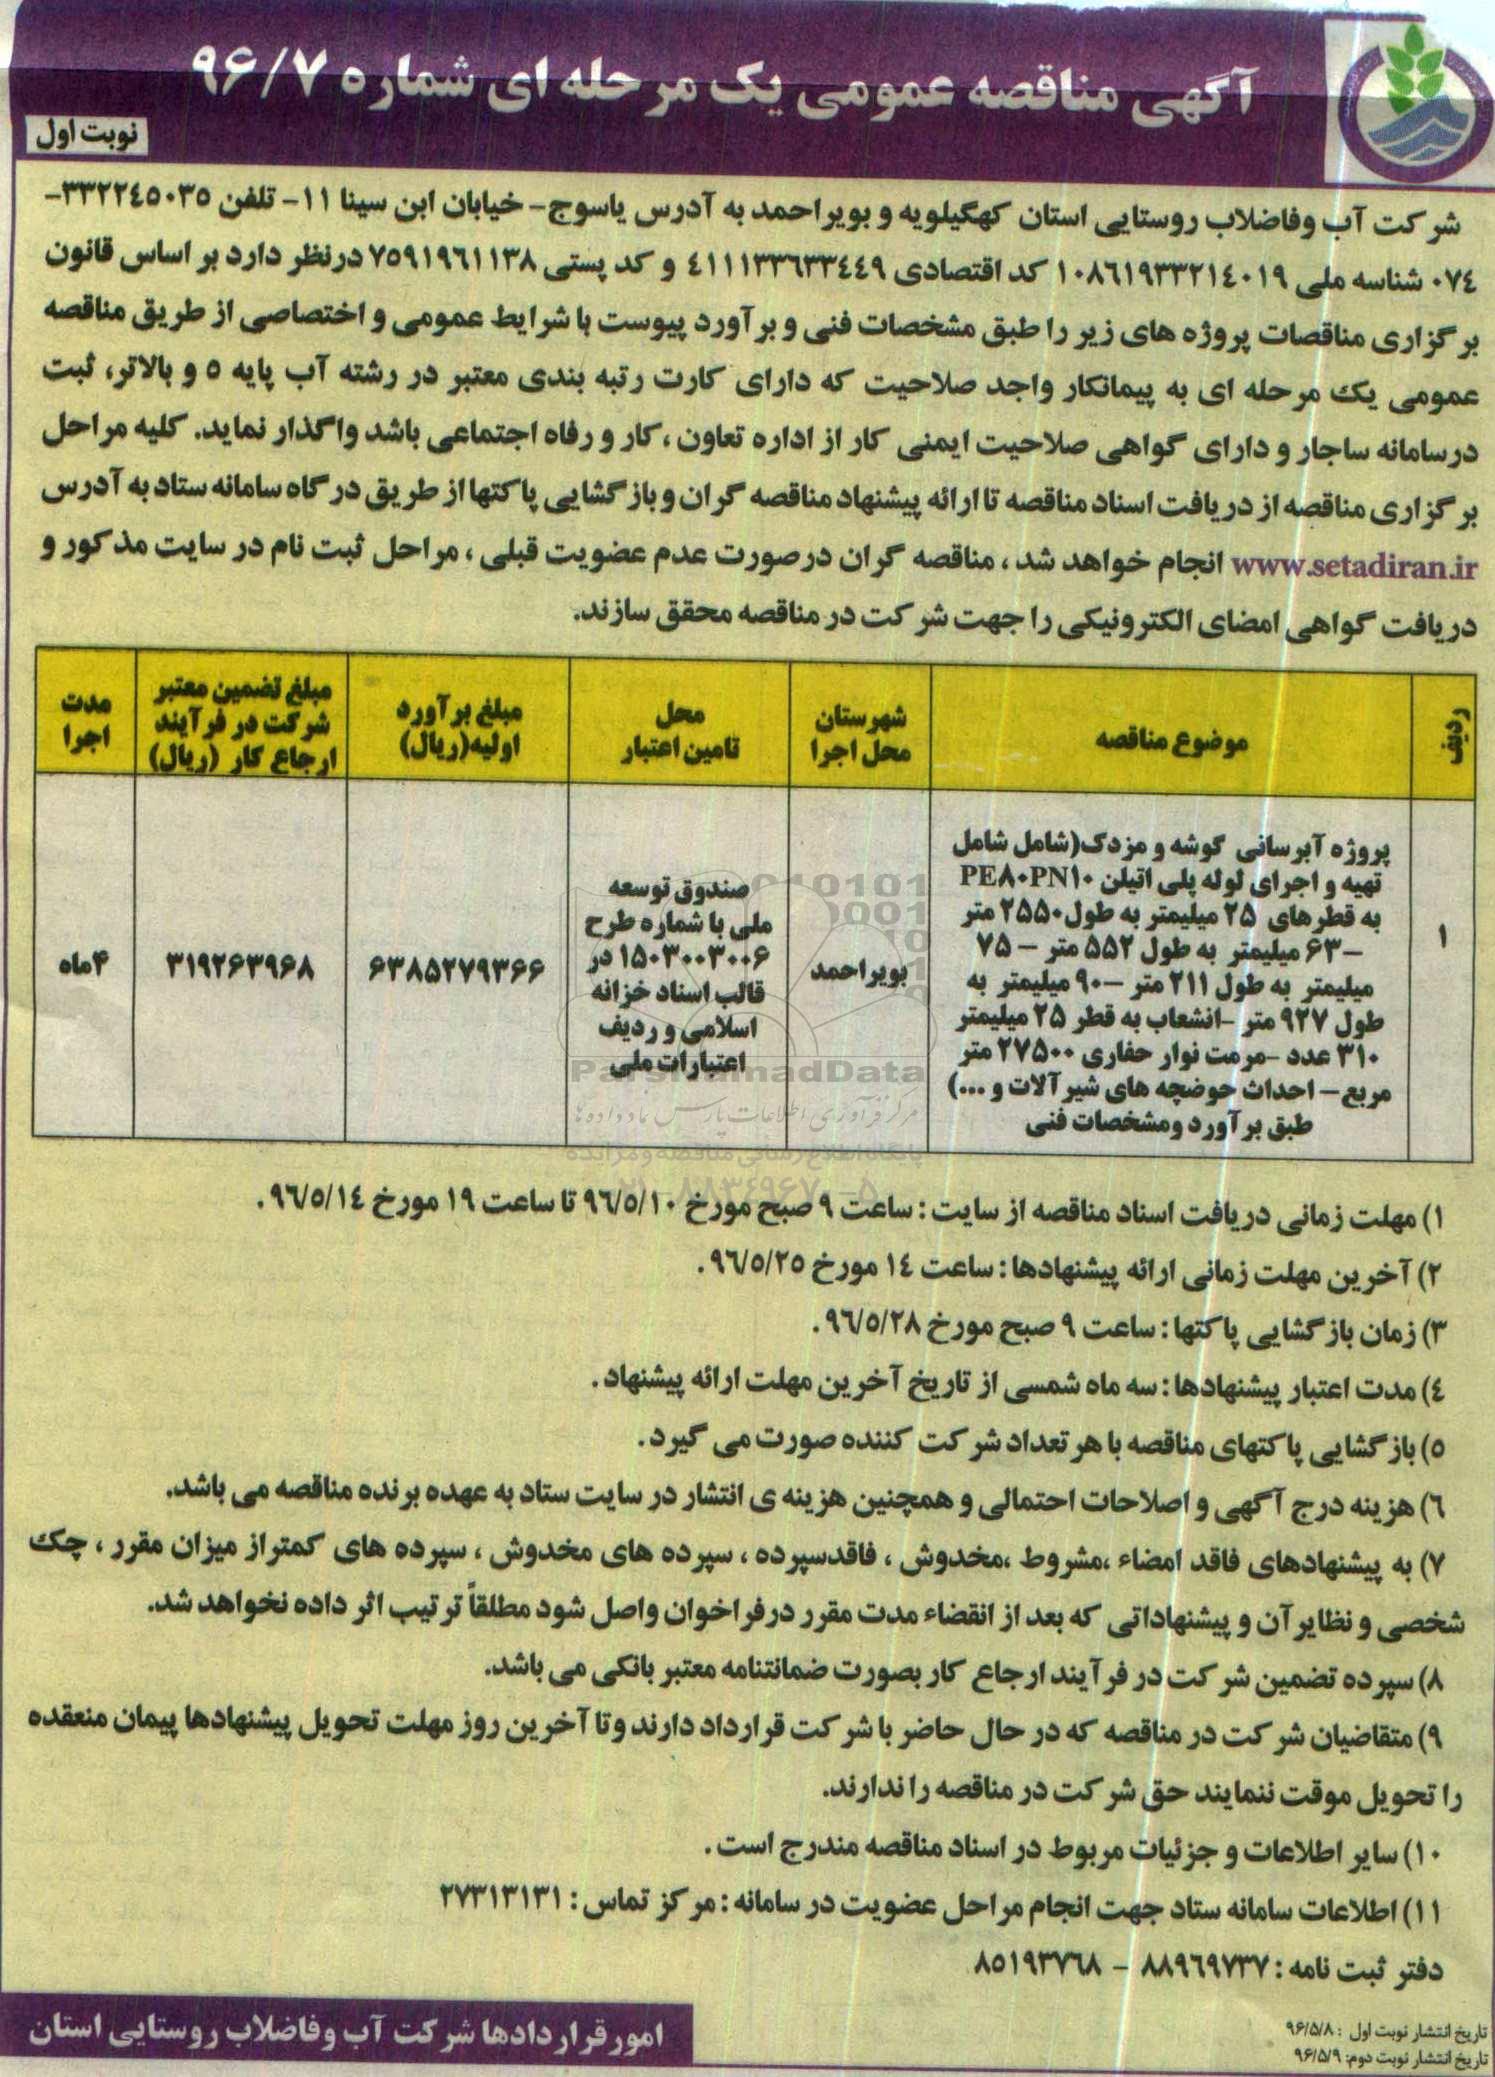 آگهی مناقصه عمومی یک مرحله ای شماره ۹۶/۷
نوبت اول
شرکت آب وفاضلاب روستایی استان کهگیلویه و بویراحمد به آدرس یاسوج- خیابان ابن سینا ۱۱- تلفن ۳۳۲۲۴۵۰۳۵-
۰۷۴ شناسه ملی ۱۰۸۶۱۹۳۳۲۱۴۰۱۹ کد اقتصادی ۴۱۱۱۳۳۶۳۳۴۴۹ و کد پستی ۷۵۹۱۹۶۱۱۳۸ درنظر دارد بر اساس قانون
برگزاری مناقصات پروژه های زیر را طبق مشخصات فنی و برآورد پیوست با شرایط عمومی و اختصاصی از طریق مناقصه
عمومی یک مرحله ای به پیمانکار واجد صلاحیت که دارای کارت رتبه بندی معتبر در رشته آب پایه ۵ و بالاتر، ثبت
درسامانه ساجار و دارای گواهی صلاحیت ایمنی کار از اداره تعاون ،کار و رفاه اجتماعی باشد واگذار نماید. کلیه مراحل
برگزاری مناقصه از دریافت اسناد مناقصه تا ارائه پیشنهاد مناقصه گران و بازگشایی پاکتها از طریق درگاه سامانه ستاد به آدرس
www.setadiran.ir انجام خواهد شد ، مناقصه گران درصورت عدم عضویت قبلی ، مراحل ثبت نام در سایت مذکور و
دریافت گواهی امضای الکترونیکی را جهت شرکت در مناقصه محقق سازند.
ردیف
موضوع مناقصه
شهرستان
محل اجرا
محل
تامین اعتبار
مبلغ برآورد
اولیه(ریال)
مبلغ تضمین معتبر
شرکت در فرآیند
ارجاع کار (ریال)
مدت
اجرا
۱
پروژه آبرسانی گوشه و مزدک(شامل شامل
تهیه و اجرای لوله پلی اتیلن PE۸۰PN۱۰
به قطرهای ۲۵ میلیمتر به طول۲۵۵۰ متر
-۶۳ میلیمتر به طول ۵۵۲ متر – ۷۵
میلیمتر به طول ۲۱۱ متر -۹۰ میلیمتر به
طول ۹۲۷ متر -انشعاب به قطر ۲۵ میلیمتر
۳۱۰ عدد -مرمت نوار حفاری ۲۷۵۰۰ متر
مربع- احداث حوضچه های شیرآلات و ...)
طبق برآورد ومشخصات فنی
بویراحمد
صندوق توسعه
ملی با شماره طرح
۱۵۰۳۰۰۳۰۰۶ در
قالب اسناد خزانه
اسلامی و ردیف
اعتبارات ملی
۶۳۸۵۲۷۹۳۶۶
۳۱۹۲۶۳۹۶۸
۴ماه
ParsNamadData
مرکز فرآوری اطلاعات پارس نماد داده ها
پایگاه اطلاع رسانی مناقصه و مزایده
۰۲۱-۸۸۳۴۹۶۷۰-۵
۱) مهلت زمانی دریافت اسناد مناقصه از سایت : ساعت ۹ صبح مورخ ۹۶/۵/۱۰ تا ساعت ۱۹ مورخ ۹۶/۵/۱۴ .
۲) آخرین مهلت زمانی ارائه پیشنهادها : ساعت ۱۴ مورخ ۹۶/۵/۲۵ .
۳) زمان بازگشایی پاکتها : ساعت ۹ صبح مورخ ۹۶/۵/۲۸ .
۴) مدت اعتبار پیشنهادها : سه ماه شمسی از تاریخ آخرین مهلت ارائه پیشنهاد .
۵) بازگشایی پاکتهای مناقصه با هر تعداد شرکت کننده صورت می گیرد .
۶) هزینه درج آگهی و اصلاحات احتمالی و همچنین هزینه ی انتشار در سایت ستاد به عهده برنده مناقصه می باشد.
۷) به پیشنهادهای فاقد امضاء ،مشروط ،مخدوش ، فاقدسپرده ، سپرده های مخدوش ، سپرده های کمتراز میزان مقرر ، چک
شخصی و نظایر آن و پیشنهاداتی که بعد از انقضاء مدت مقرر درفراخوان واصل شود مطلقاً ترتیب اثر داده نخواهد شد.
۸) سپرده تضمین شرکت در فرآیند ارجاع کار بصورت ضمانتنامه معتبر بانکی می باشد.
۹) متقاضیان شرکت در مناقصه که در حال حاضر با شرکت قرارداد دارند وتا آخرین روز مهلت تحویل پیشنهادها پیمان منعقده
را تحویل موقت ننمایند حق شرکت در مناقصه را ندارند.
۱۰) سایر اطلاعات و جزئیات مربوط در اسناد مناقصه مندرج است .
۱۱) اطلاعات سامانه ستاد جهت انجام مراحل عضویت در سامانه : مرکز تماس : ۲۷۳۱۳۱۳۱
دفتر ثبت نامه : ۸۸۹۶۹۷۳۷ - ۸۵۱۹۳۷۶۸
تاریخ انتشار نوبت اول : ۹۶/۵/۸
تاریخ انتشار نوبت دوم: ۹۶/۵/۹
امورقراردادها شرکت آب وفاضلاب روستایی استان